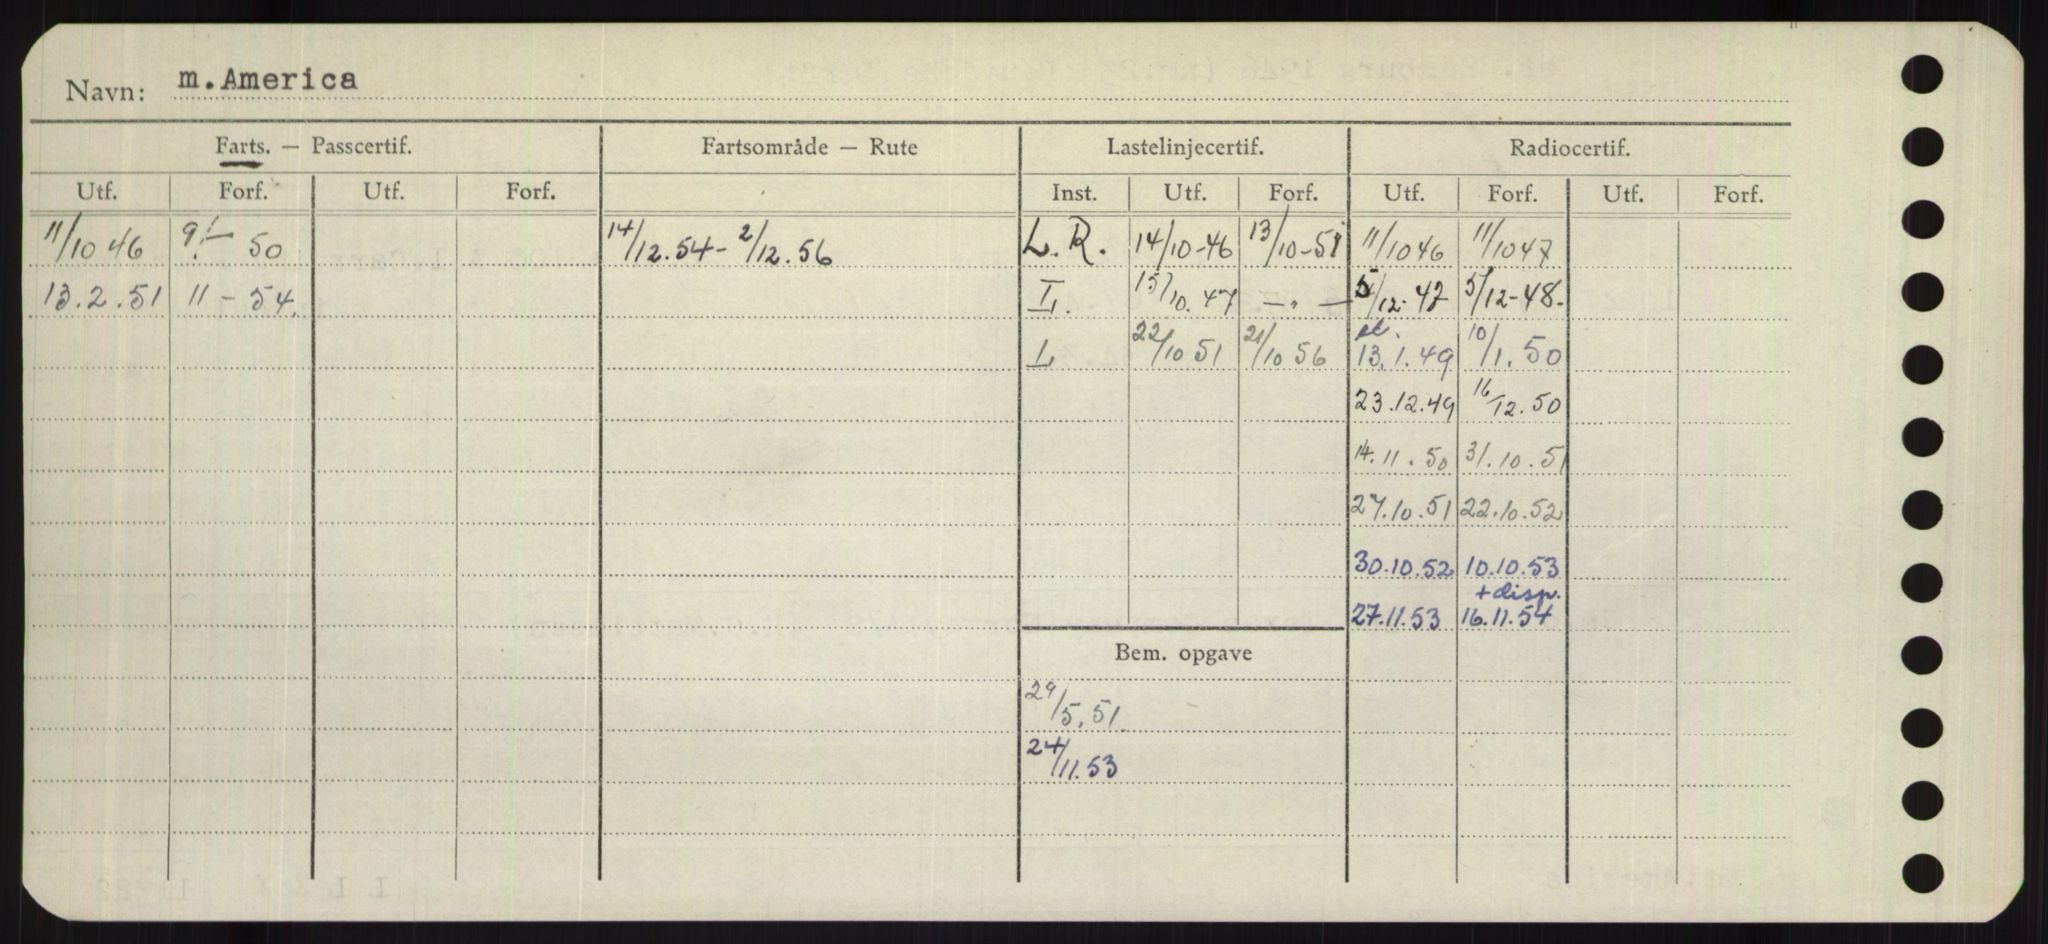 Navn: m.America
Farts. — Passcertif. Fartsområde — Rute Lastelinjecertif. Radiocertif.
Utf. Forf. Utf. Forf. Inst. Utf. Forf. Utf. Forf. Utf. Forf.
11/10 46 50 14/12.54 - 2/12.56 L.R. 14/10-46 13/10-51 11/10 46 11/10 47
13.2.51 11 - 54. I. 15/10.47 — " — 5/12-47 5/12-48.
L 22/10 51 21/10 56 13.1.49 10/1.50
23.12.49 16/12.50
14.11.50 31.10.51
27.10.51 22.10.52
30.10.52 10.10.53
+ disp.
27.11.53 16.11.54
Bem. opgave
29/5.51.
24/11.53